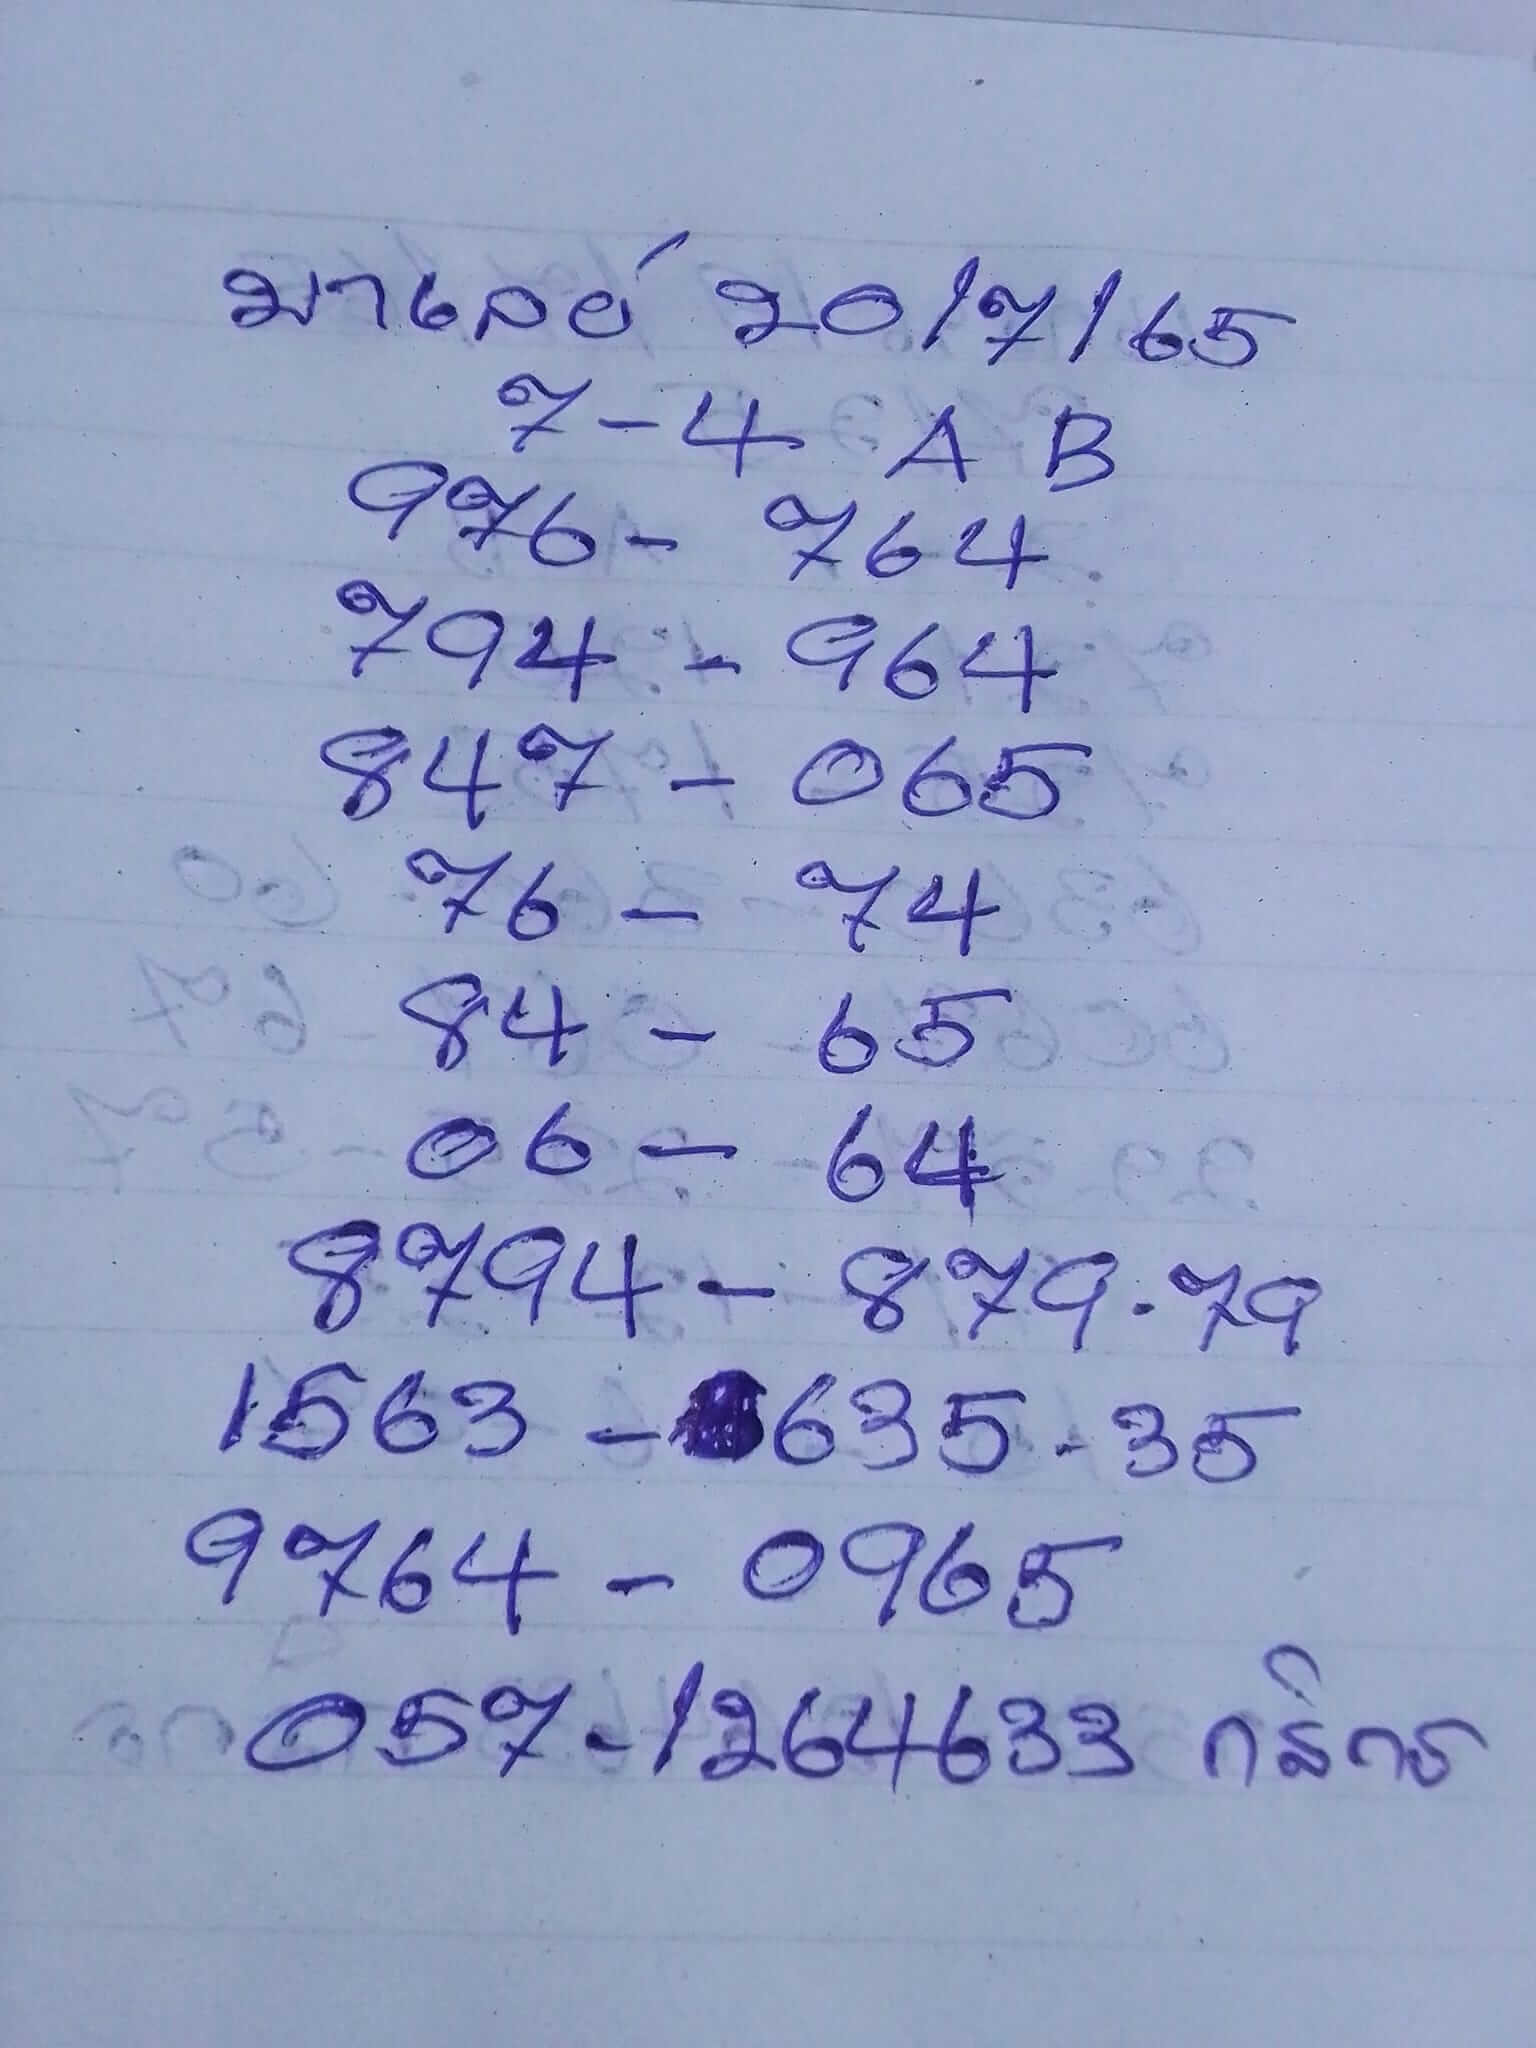 มาเลย์ 20/7/65
7-4 A B
976- 764
794 - 964
847 - 065
76 - 74
84 - 65
06 - 64
8794 - 879.79
1563 - 635.35
9764 - 0965
057-1264633